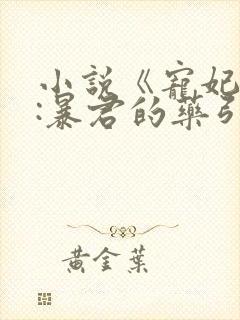 小説《寵妃
:暴君的藥引
黃金葉